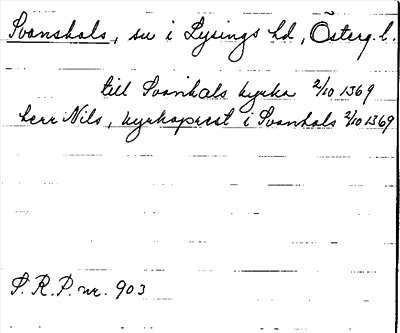 Svanshals, sn i Lysings hd, Österg. l.
till Svanhals kyrka 2/10 1369
herr Nils, kyrkoprest i Svanhals 2/10 1369
S.R.P. nr. 903